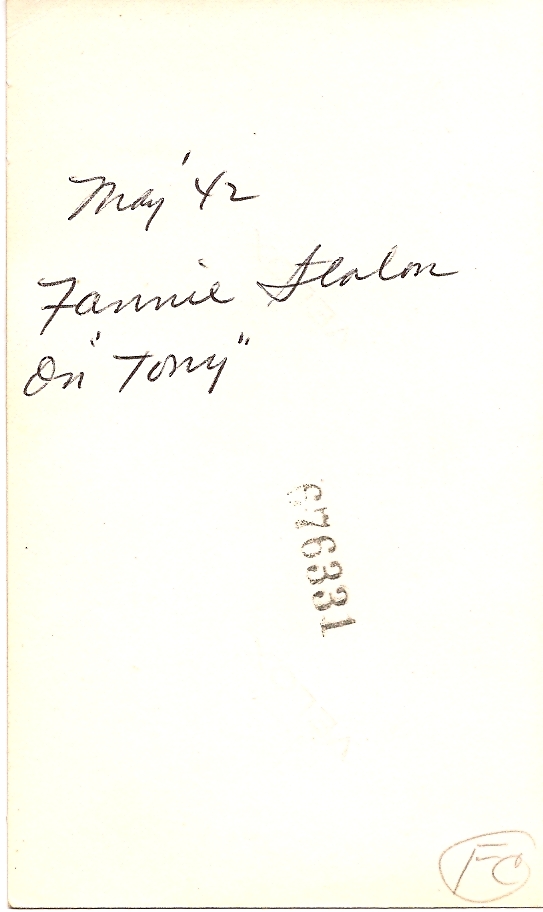 May '42
Fannie
On "Tony"
676331
FC